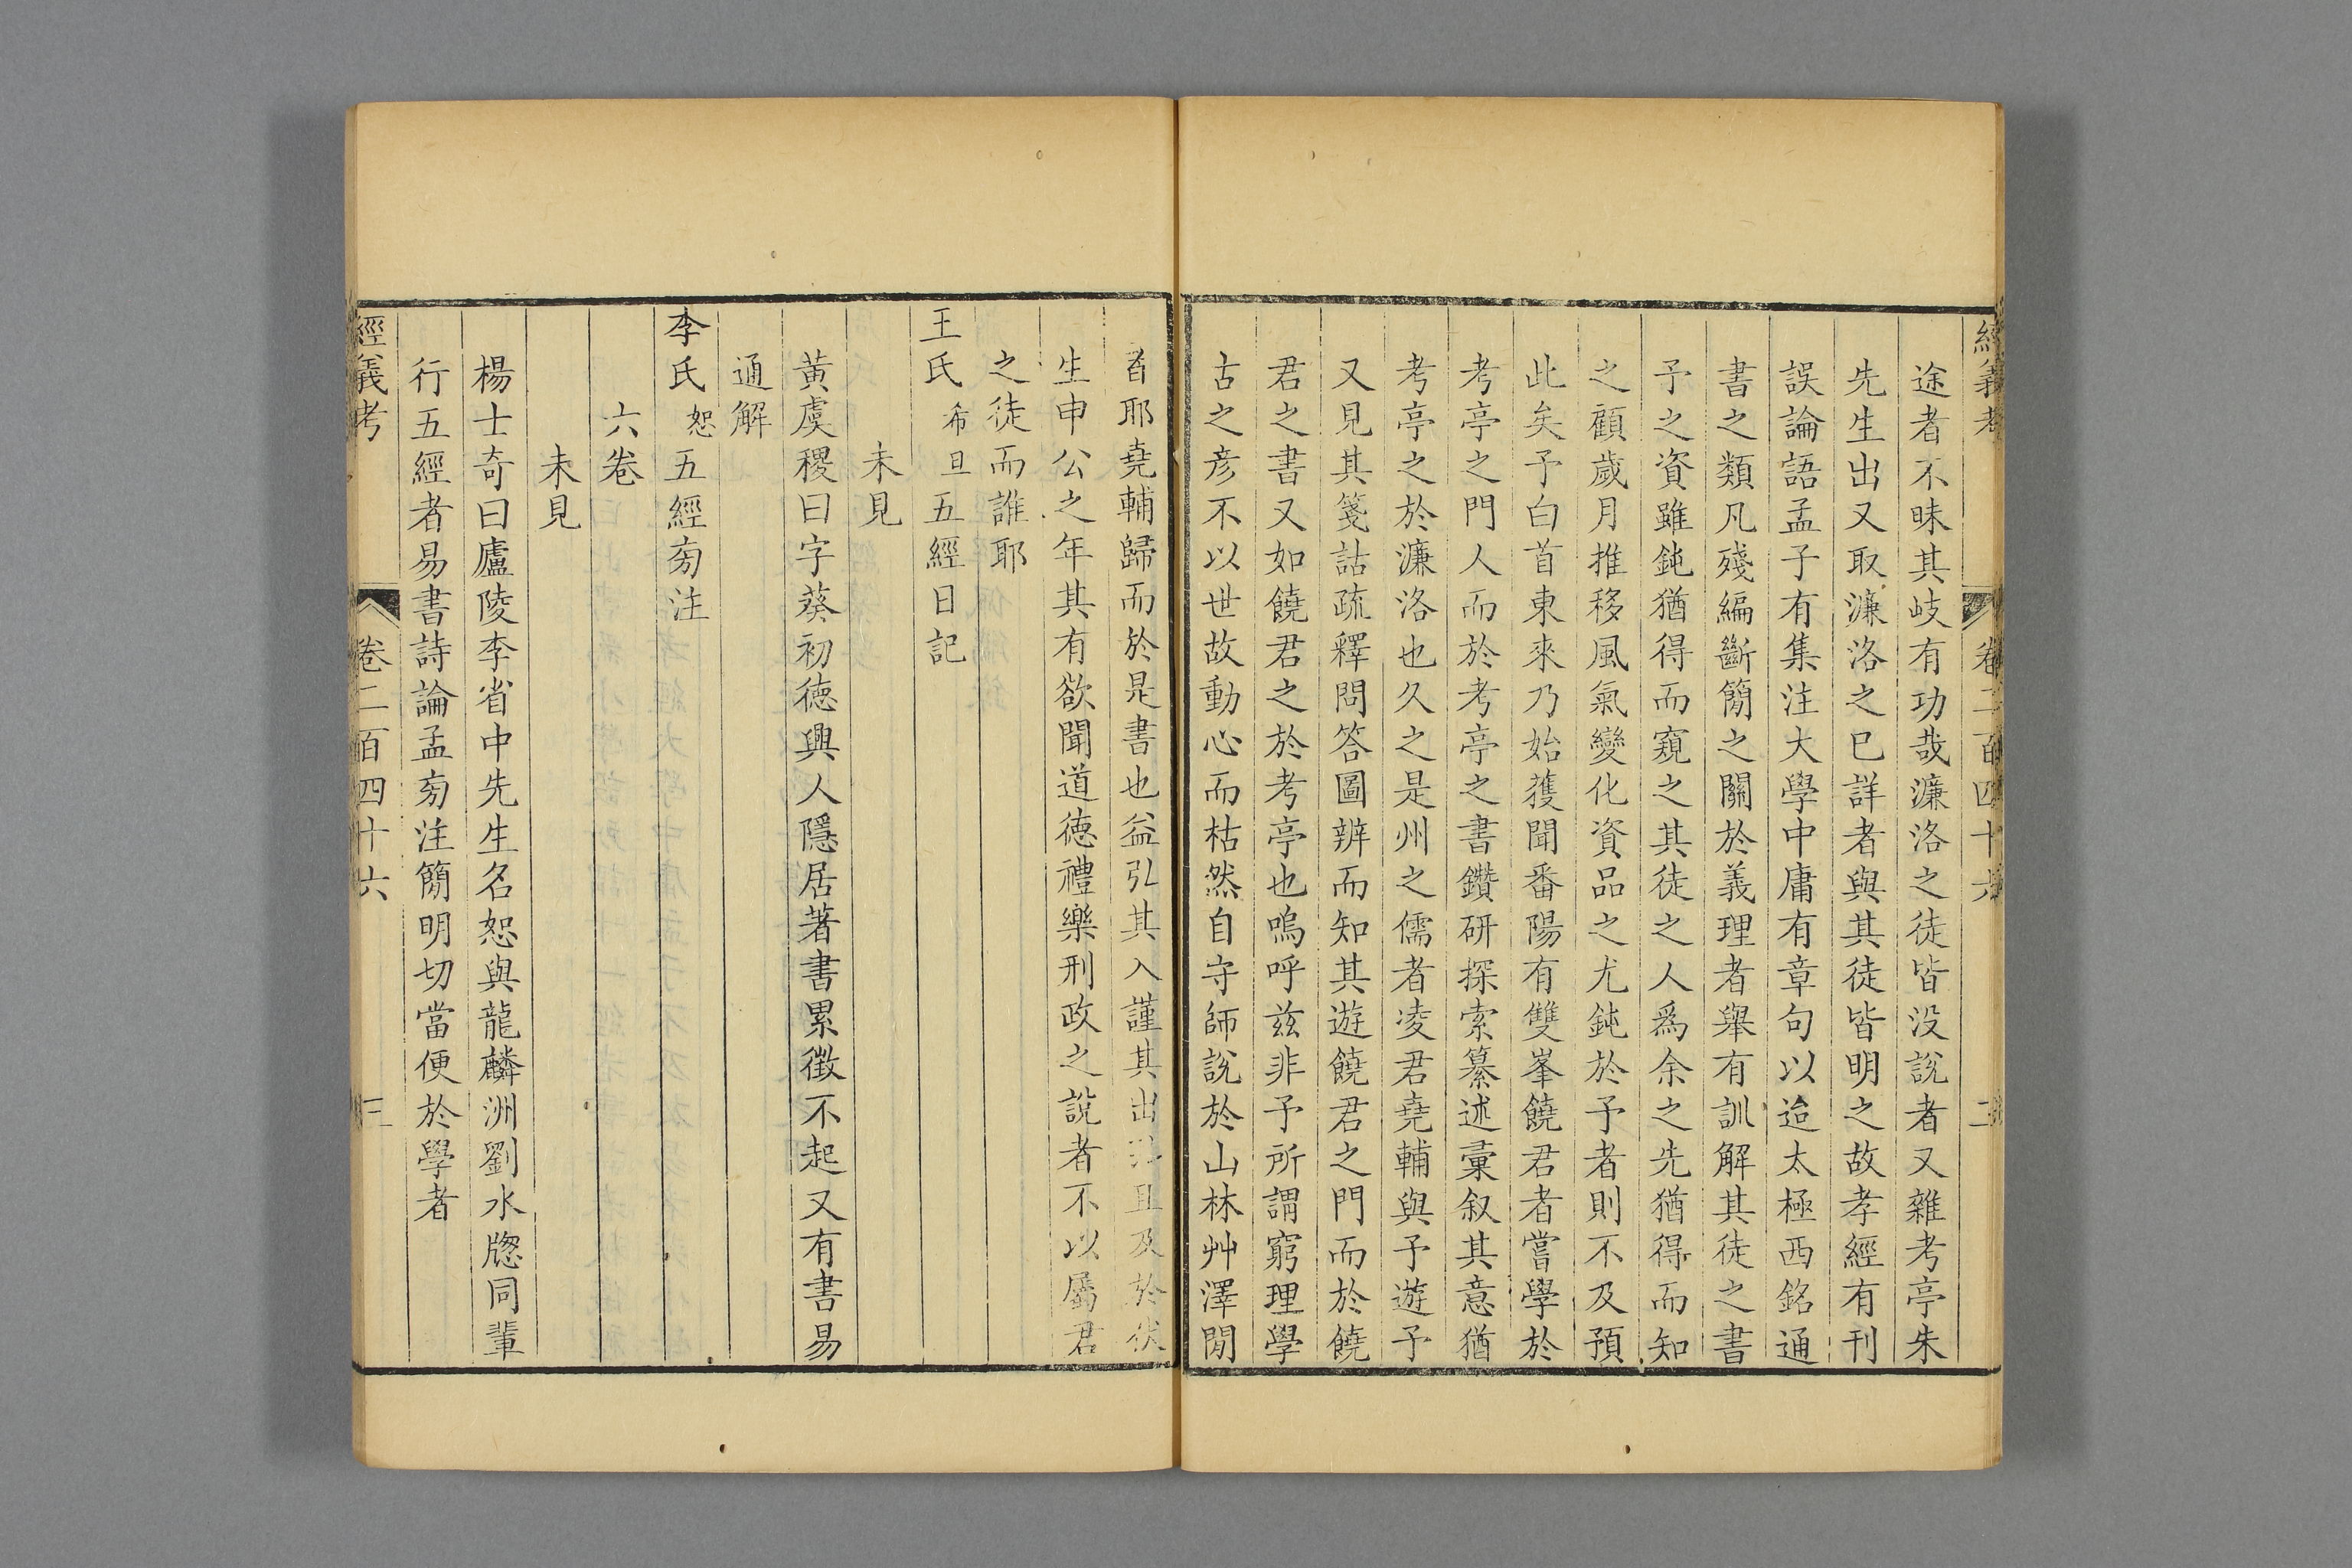 經義考 卷二百四十六 二
途者不昧其岐有功哉濂洛之徒皆没說者又雜考亭朱
先生出又取濂洛之已詳者與其徒皆明之故孝經有刊
誤論語孟子有集注大學中庸有章句以迨太極西銘通
書之類凡殘編斷簡之關於義理者舉有訓解其徒之書
予之資雖鈍猶得而窺之其徒之人爲余之先猶得而知
之顧歲月推移風氣變化資品之尤鈍於予者則不及預
此矣予白首東來乃始獲聞番陽有雙峯饒君者嘗學於
考亭之門人而於考亭之書鑽研探索纂述彙叙其意猶
考亭之於濂洛也久之是州之儒者凌君堯輔與予遊予
又見其箋詁疏釋問答圖辨而知其遊饒君之門而於饒
君之書又如饒君之於考亭也嗚呼兹非予所謂窮理學
古之彥不以世故動心而枯然自守師說於山林艸澤閒
者耶堯輔歸而於是書也益弘其入謹其出 且及於伏
生申公之年其有欲聞道德禮樂刑政之說者不以屬君
之徒而誰耶
王氏希旦五經日記
未見
黃虞稷曰字葵初德興人隱居著書累徵不起又有書易
通解
李氏恕五經㫄注
六卷
未見
楊士奇曰廬陵李省中先生名恕與龍麟洲劉水牕同輩
行五經者易書詩論孟㫄注簡明切當便於學者
經義考 卷二百四十六 三